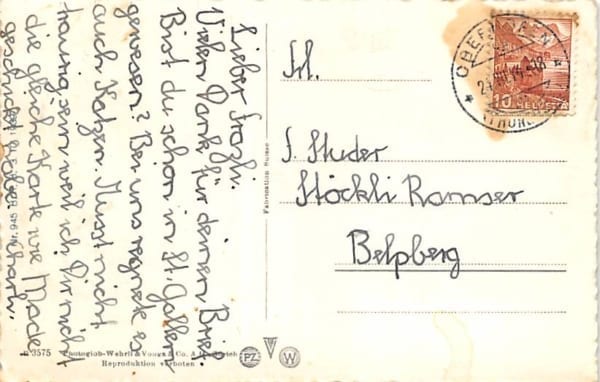 Lieber Frazli.
Vielen Dank für deinen Brief.
Bist du schon in St. Gallen
gewesen? Bei uns regnete es
auch Katzen. Musst nicht
traurig sein weil ich Dir nicht
die gleiche Karte wie Made
geschickt
Fabrication Suisse
Frl.
S. Studer
Stöckli Ramser
Belpberg
HELVETIA
10
3575 Photoglob-Wehrli & Vouga & Co. A. G. Zürich
Reproduktion verboten
PZ
V
W